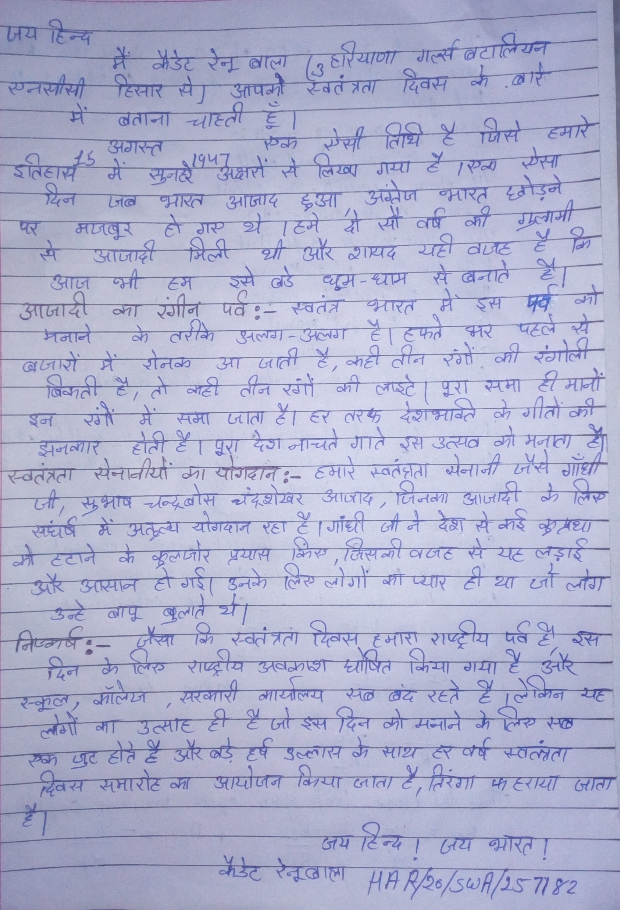 जय हिन्द
मैं कैडेट रेनू बाला (3 हरियाणा गर्ल्स बटालियन
एनसीसी हिसार से) आपको स्वतंत्रता दिवस के बारे
में बताना चाहती हूँ।
15 अगस्त 1947 एक ऐसी तिथि है जिसे हमारे
इतिहास में सुनहरे अक्षरों से लिखा गया है। एक ऐसा
दिन जब भारत आजाद हुआ, अंग्रेज भारत छोड़ने
पर मजबूर हो गए थे। हमे दो सौ वर्ष की गुलामी
से आजादी मिली थी और शायद यही वजह है कि
आज भी हम इसे बडे धूम-धाम से बनाते है।
आजादी का रंगीन पर्व:- स्वतंत्र भारत में इस पर्व को
मनाने के तरीके अलग-अलग है। हफ्ते भर पहले से
बजारों में रोनक आ जाती है, कही तीन रंगों की रंगोली
बिकती है, तो कही तीन रंगों की लाइटे। पूरा समा ही मानों
इन रंगों में समा जाता है। हर तरफ देशभक्ति के गीतों की
झनकार होती है। पूरा देश नाचते गाते इस उत्सव को मनाता है।
स्वतंत्रता सेनानीयों का योगदान:- हमारे स्वतंत्रता सेनानी जैसे गाँधी
जी, सुभाष चन्द्रबोस चंद्रशेखर आजाद, जिनका आजादी के लिए
संघर्ष में अतूल्य योगदान रहा है। गांधी जी ने देश से कई कुप्रथा
को हटाने के कुलजोर प्रयास किए, जिसकी वजह से यह लड़ाई
और आसान हो गई। उनके लिए लोगों का प्यार ही था जो लोग
उन्हे बापू बुलाते थे।
निष्कर्ष:- जैसा कि स्वतंत्रता दिवस हमारा राष्ट्रीय पर्व है, इस
दिन के लिए राष्ट्रीय अवकाश घोषित किया गया है और
स्कूल, कॉलेज, सरकारी कार्यालय सब बंद रहते है। लेकिन यह
लोगों का उत्साह ही है जो इस दिन को मनाने के लिए सब
एक जुट होते है और बडे हर्ष उल्लास के साथ हर वर्ष स्वतंत्रता
दिवस समारोह का आयोजन किया जाता है, तिरंगा फहराया जाता
है।
जय हिन्द! जय भारत!
कैडेट रेनू बाला HAR/20/SWA/257182